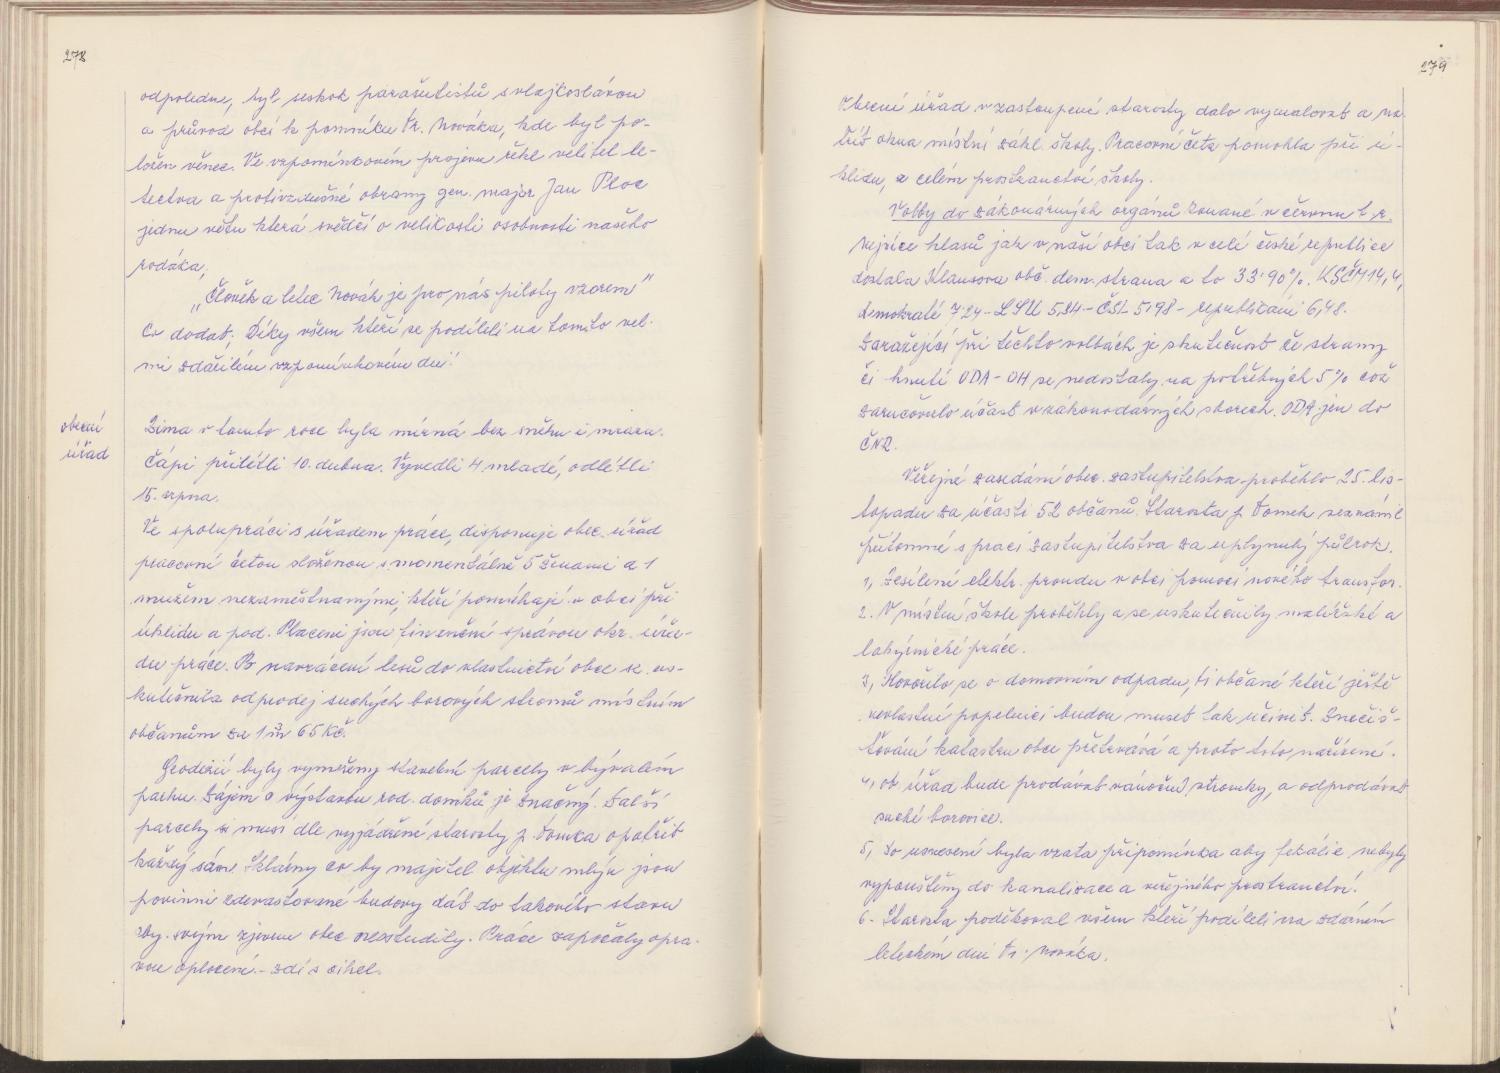 278
odpoledne, byl seskok parašutistů s vlajkoslávou
a průvod obcí k pomníku Fr. Nováka, kde byl po-
ložen věnec. Ve vzpomínkovém projevu řekl velitel le-
tectva a protivzdušné obrany gen. major Jan Ploc
jednu větu která svědčí o velikosti osobnosti našeho
rodáka,
„Člověk a letec Novák je pro nás piloty vzorem"
Co dodat; Díky všem kteří se podíleli na tomto vel-
mi zdařilém vzpomínkovém dni!
obecní
úřad
Zima v tomto roce byla mírná bez sněhu i mrazu.
Čápi přilétli 10. dubna. Vyvedli 4 mladé, odlétli
15. srpna.
Ve spolupráci s úřadem práce, disponuje obec. úřad
pracovní četou složenou s momentálně 5 ženami a 1
mužem nezaměstnanými, kteří pomáhají v obci při
úklidu a pod. Placeni jsou finanční správou okr. úřa-
du práce. Po navrácení lesů do vlastnictví obce se us-
kutečnila odprodej suchých borových stromů místním
občanům za 1 m 65 Kč.
Geodezií byly vyměřeny stavební parcely v bývalém
parku. Zájem o výstavbu rod. domků je značný. Další
parcely si musí dle vyjádření starosty p. Tomka opatřit
každý sám. Sklárny co by majitel objektu mlýn jsou
povinni zdevastované budovy dát do takového stavu
aby svým zjevem obec neostudily. Práce započaly opra-
vou oplocení - zdi s cihel.
279
Obecní úřad v zastoupení starosty dalo vymalovat a na-
třít okna místní zákl. školy. Pracovní četa pomohla při ú-
klidu, a celém prostranství školy.
Volby do zákonárných orgánů konané v červnu t.r.
nejvíce hlasů jak v naší obci tak v celé české republice
dostala Klausova obč. dem. strana a to 33·90%. KSČM 14,4,
demokraté 7·24 - LSU 5,84 - ČSL 5·98 - republikáni 6,48.
Zarážející při těchto volbách je skutečnost že strany
či hnutí ODA - OH se nedostaly na potřebných 5% což
zaručovalo účast v zákonodárných sborech. ODA jen do
ČNR.
Veřejné zasedání obec. zastupitelstva proběhlo 25. lis-
topadu za účasti 52 občanů. Starosta p. Tomek seznámil
přítomné s prací zastupitelstva za uplynulý půlrok.
1, Zesílení elektr. proudu v obci pomocí nového transfor.
2. V místní škole proběhly a se uskutečnily malířské a
lakýrnické práce.
3, Hovořilo se o domovním odpadu, ti občané kteří ještě
nevlastní popelnici budou muset tak učinit. Znečiš-
ťování katastru obce přetrvává a proto toto nařízení.
4, ob. úřad bude prodávat vánoční stromky, a odprodávat
suché borovice.
5, Do usnesení byla vzata připomínka aby fekálie nebyly
vypouštěny do kanalizace a veřejného prostranství.
6. Starosta poděkoval všem kteří podíleli na zdárném
leteckém dni Fr. Nováka.